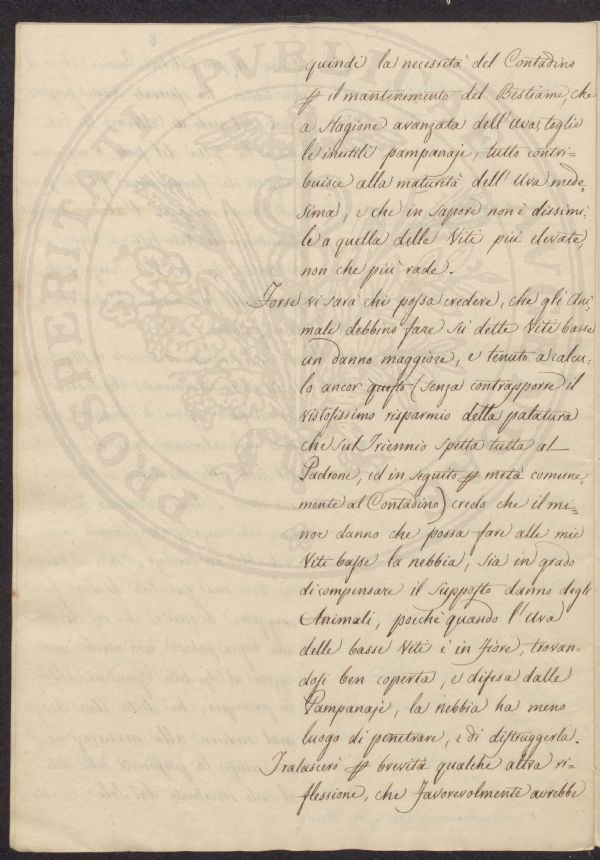 quindi la necessità del Contadino
p il mantenimento del Bestiame, che
a Stagione avanzata dell'Uva, toglie
le inutili pampanaje, tutto contri=
buisce alla maturità dell'Uva mede=
sima, e che in sapore non è dissimi=
le a quella delle Viti più elevate,
non che più rade.
Forse vi sarà chi possa credere, che gli Ani=
male debbino fare sù dette Viti basse
un danno maggiore, e tenuto a calcu=
lo ancor questo (senza contrapporre il
vistosissimo risparmio della palatura
che sul Triennio spetta tutta al
Padrone, ed in seguito p metà comune=
mente al Contadino) credo che il mi=
nor danno che possa fare alle mie
Viti basse la nebbia, sia in grado
di compensare il supposto danno degli
Animali, poichè quando l'Uva
delle basse Viti è in fiore, trovan=
dosi ben coperta, e difesa dalle
Pampanaje, la nebbia ha meno
luogo di penetrare, e di distruggerla.
Tralascerò p brevità qualche altra ri=
flessione, che favorevolmente avrebbe
PROSPERITATI PVBLICAE